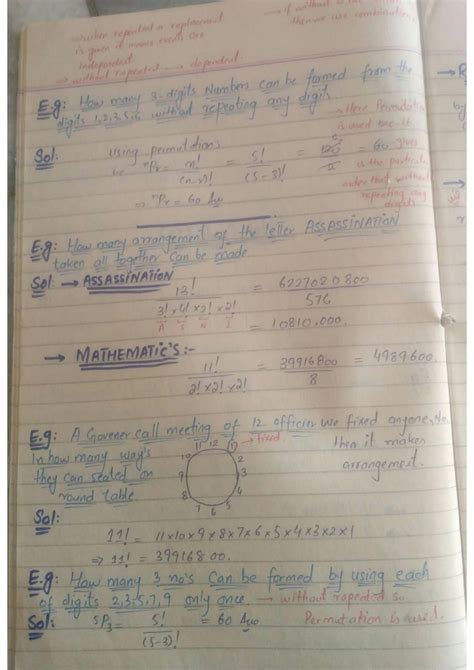 → when repeated or replacement
is given it means events are
Independent.
→ without repeated → dependent.
→ if without
then we use combination
E.g: How many 3-digits Numbers can be formed from the
digits 1,2,3,5,6 without repeating any digit.
→ Here Permutation
is used
gives
is the particular
order that without
repeating any
digits
Sol: Using permutations
ⁿPr = n!/(n-r)! = 5!/(5-3)! = 120/2 = 60
ⁿPr = 60 Ans
E.g: How many arrangement of the letter ASSASSINATION
taken all together can be made
Sol → ASSASSINATION
13!/(3! × 4! × 2! × 2!) = 6227020800/576
A S N I
= 10810,000.
→ MATHEMATIC'S:-
11!/(2! × 2! × 2!) = 39916800/8 = 4989600.
E.g: A Governer call meeting of 12 officier we fixed anyone, No.
In how many way's
they can seated on
round table
11 12 1 → fixed
10 2 3 4 5 6 7 8
then it makes
arrangement.
Sol:
11! = 11×10×9×8×7×6×5×4×3×2×1
⇒ 11! = 39916800.
E.g: How many 3 no's can be formed by using each
of digits 2,3,5,7,9 only once. → without repeated so
Permutation is used.
Sol: ⁵P₃ = 5!/(5-3)! = 60 Ans